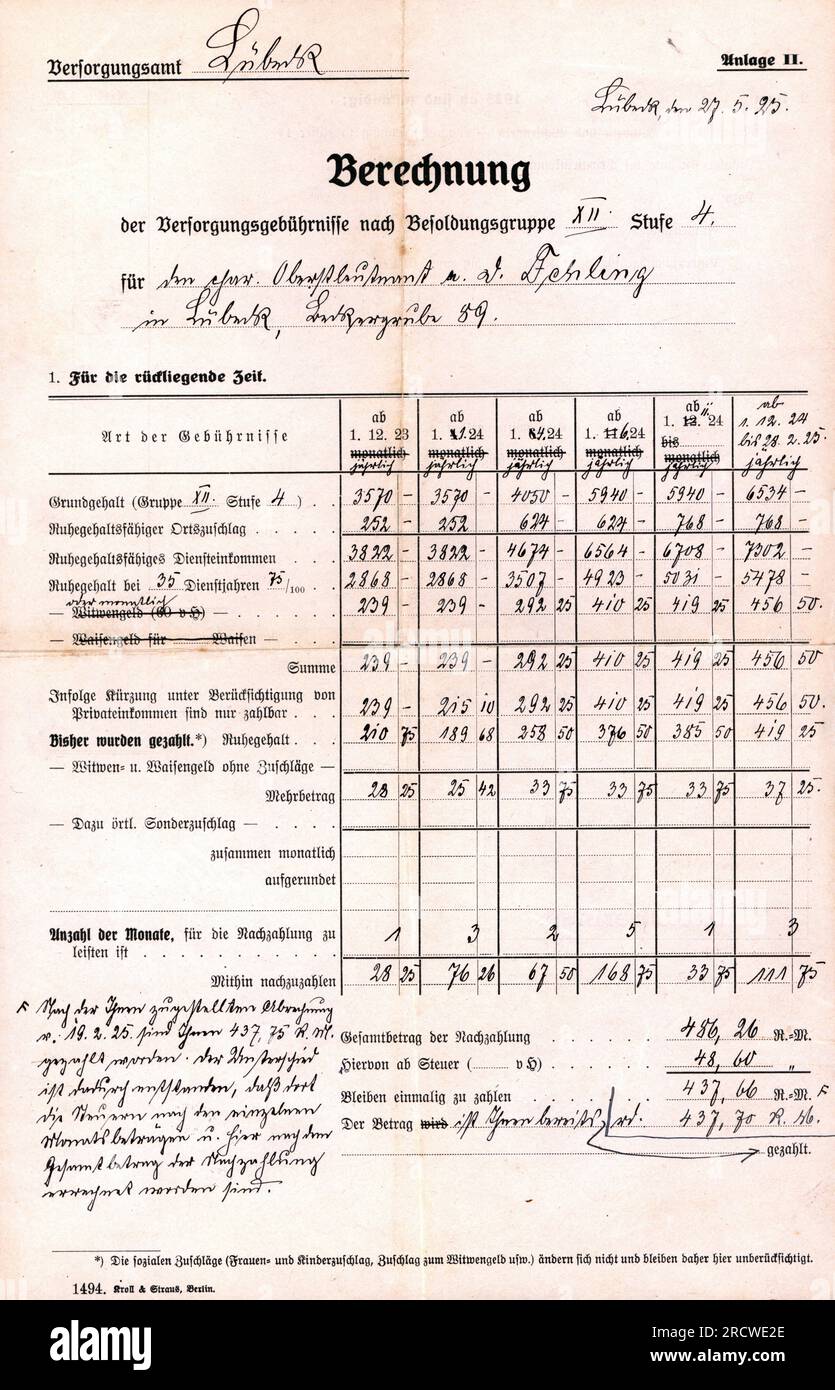 Versorgungsamt Lübeck
Anlage II.
Lübeck, den 27. 5. 25.
Berechnung
der Versorgungsgebührnisse nach Besoldungsgruppe XII. Stufe 4.
für den char. Oberstleutnant a. D. Fehling
in Lübeck, Beckergrube 89.
1. Für die rückliegende Zeit.
Art der Gebührnisse
ab 1. 12. 23 monatlich jährlich
ab 1. 1. 24 monatlich jährlich
ab 1. 4. 24 monatlich jährlich
ab 1. 6. 24 monatlich jährlich
ab 1. 11. 24 bis monatlich jährlich
ab 1. 12. 24 bis 28. 2. 25. jährlich
Grundgehalt (Gruppe XII. Stufe 4) . . 3570 – 3570 – 4050 – 5940 – 5940 – 6534 –
Ruhegehaltsfähiger Ortszuschlag . . . . 252 – 252 624 – 624 – 768 – 768 –
Ruhegehaltsfähiges Diensteinkommen . . . 3822 – 3822 – 4674 – 6564 – 6708 – 7302 –
Ruhegehalt bei 35 Dienstjahren 75/100 . . 2868 – 2868 – 3507 – 4923 – 5031 – 5478 –
oder monatlich
— Witwengeld (60 v H) — . . . . 239 – 239 – 292 25 410 25 419 25 456 50.
— Waisengeld für Waisen — . . . .
Summe 239 – 239 – 292 25 410 25 419 25 456 50
Infolge Kürzung unter Berücksichtigung von
Privateinkommen sind nur zahlbar . . . 239 – 215 10 292 25 410 25 419 25 456 50.
Bisher wurden gezahlt.*) Ruhegehalt . . . 210 75 189 68 258 50 376 50 385 50 419 25
— Witwen- u. Waisengeld ohne Zuschläge —
Mehrbetrag 28 25 25 42 33 75 33 75 33 75 37 25.
— Dazu örtl. Sonderzuschlag — . . . .
zusammen monatlich
aufgerundet
Anzahl der Monate, für die Nachzahlung zu
leisten ist . . . . . . . . . . 1 3 2 5 1 3
Mithin nachzuzahlen 28 25 76 26 67 50 168 75 33 75 111 75
F Nach der Ihnen zugestellten Abrechnung
v. 19. 2. 25. sind Ihnen 437,75 R. M.
gezahlt worden. Der Unterschied
ist dadurch entstanden, daß dort
die Steuern nach den einzelnen
Monatsbeträgen u. hier nach dem
Gesamtbetrag der Nachzahlung
errechnet worden sind.
Gesamtbetrag der Nachzahlung . . . . . . 486,26 R.-M.
Hiervon ab Steuer (........ v H) . . . . . . 48,60 „
Bleiben einmalig zu zahlen . . . . . . 437,66 R.-M. F
Der Betrag wird ist Ihnen bereits, rd. 437,70 R. M.
gezahlt.
*) Die sozialen Zuschläge (Frauen- und Kinderzuschlag, Zuschlag zum Witwengeld usw.) ändern sich nicht und bleiben daher hier unberücksichtigt.
1494. Kroll & Straus, Berlin.
alamy
Image ID: 2RCWE2E
www.alamy.com